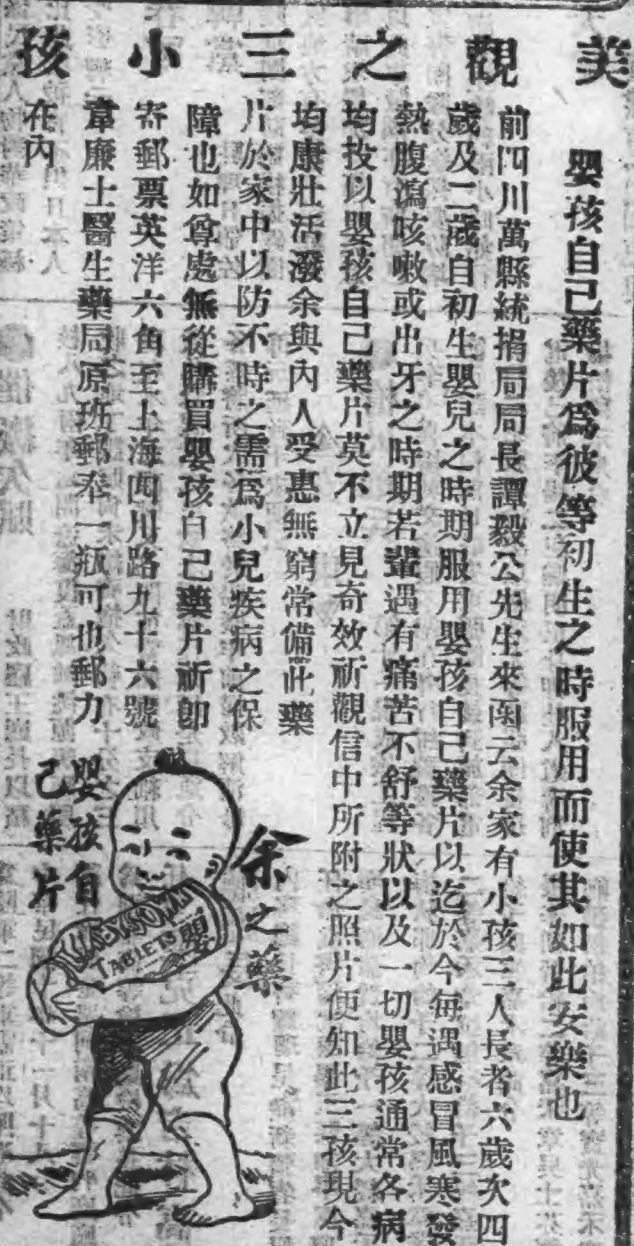 美觀之三小孩
嬰孩自己藥片爲彼等初生之時服用而使其如此安樂也
前四川萬縣統捐局局長譚毅公先生來函云余家有小孩三人長者六歲次四
歲及二歲自初生嬰兒之時期服用嬰孩自己藥片以迄於今每遇感冒風寒發
熱腹瀉咳嗽或出牙之時期若輩遇有痛苦不舒等狀以及一切嬰孩通常各病
均投以嬰孩自己藥片莫不立見奇效祈觀信中所附之照片便知此三孩現今
均康壯活潑余與內人受惠無窮常備此藥
片於家中以防不時之需爲小兒疾病之保
障也如尊處無從購買嬰孩自己藥片祈卽
寄郵票英洋六角至上海四川路九十六號
韋廉士醫生藥局原班郵奉一瓶可也郵力
在內
余之藥
嬰孩自
己藥片
TABLETS 嬰